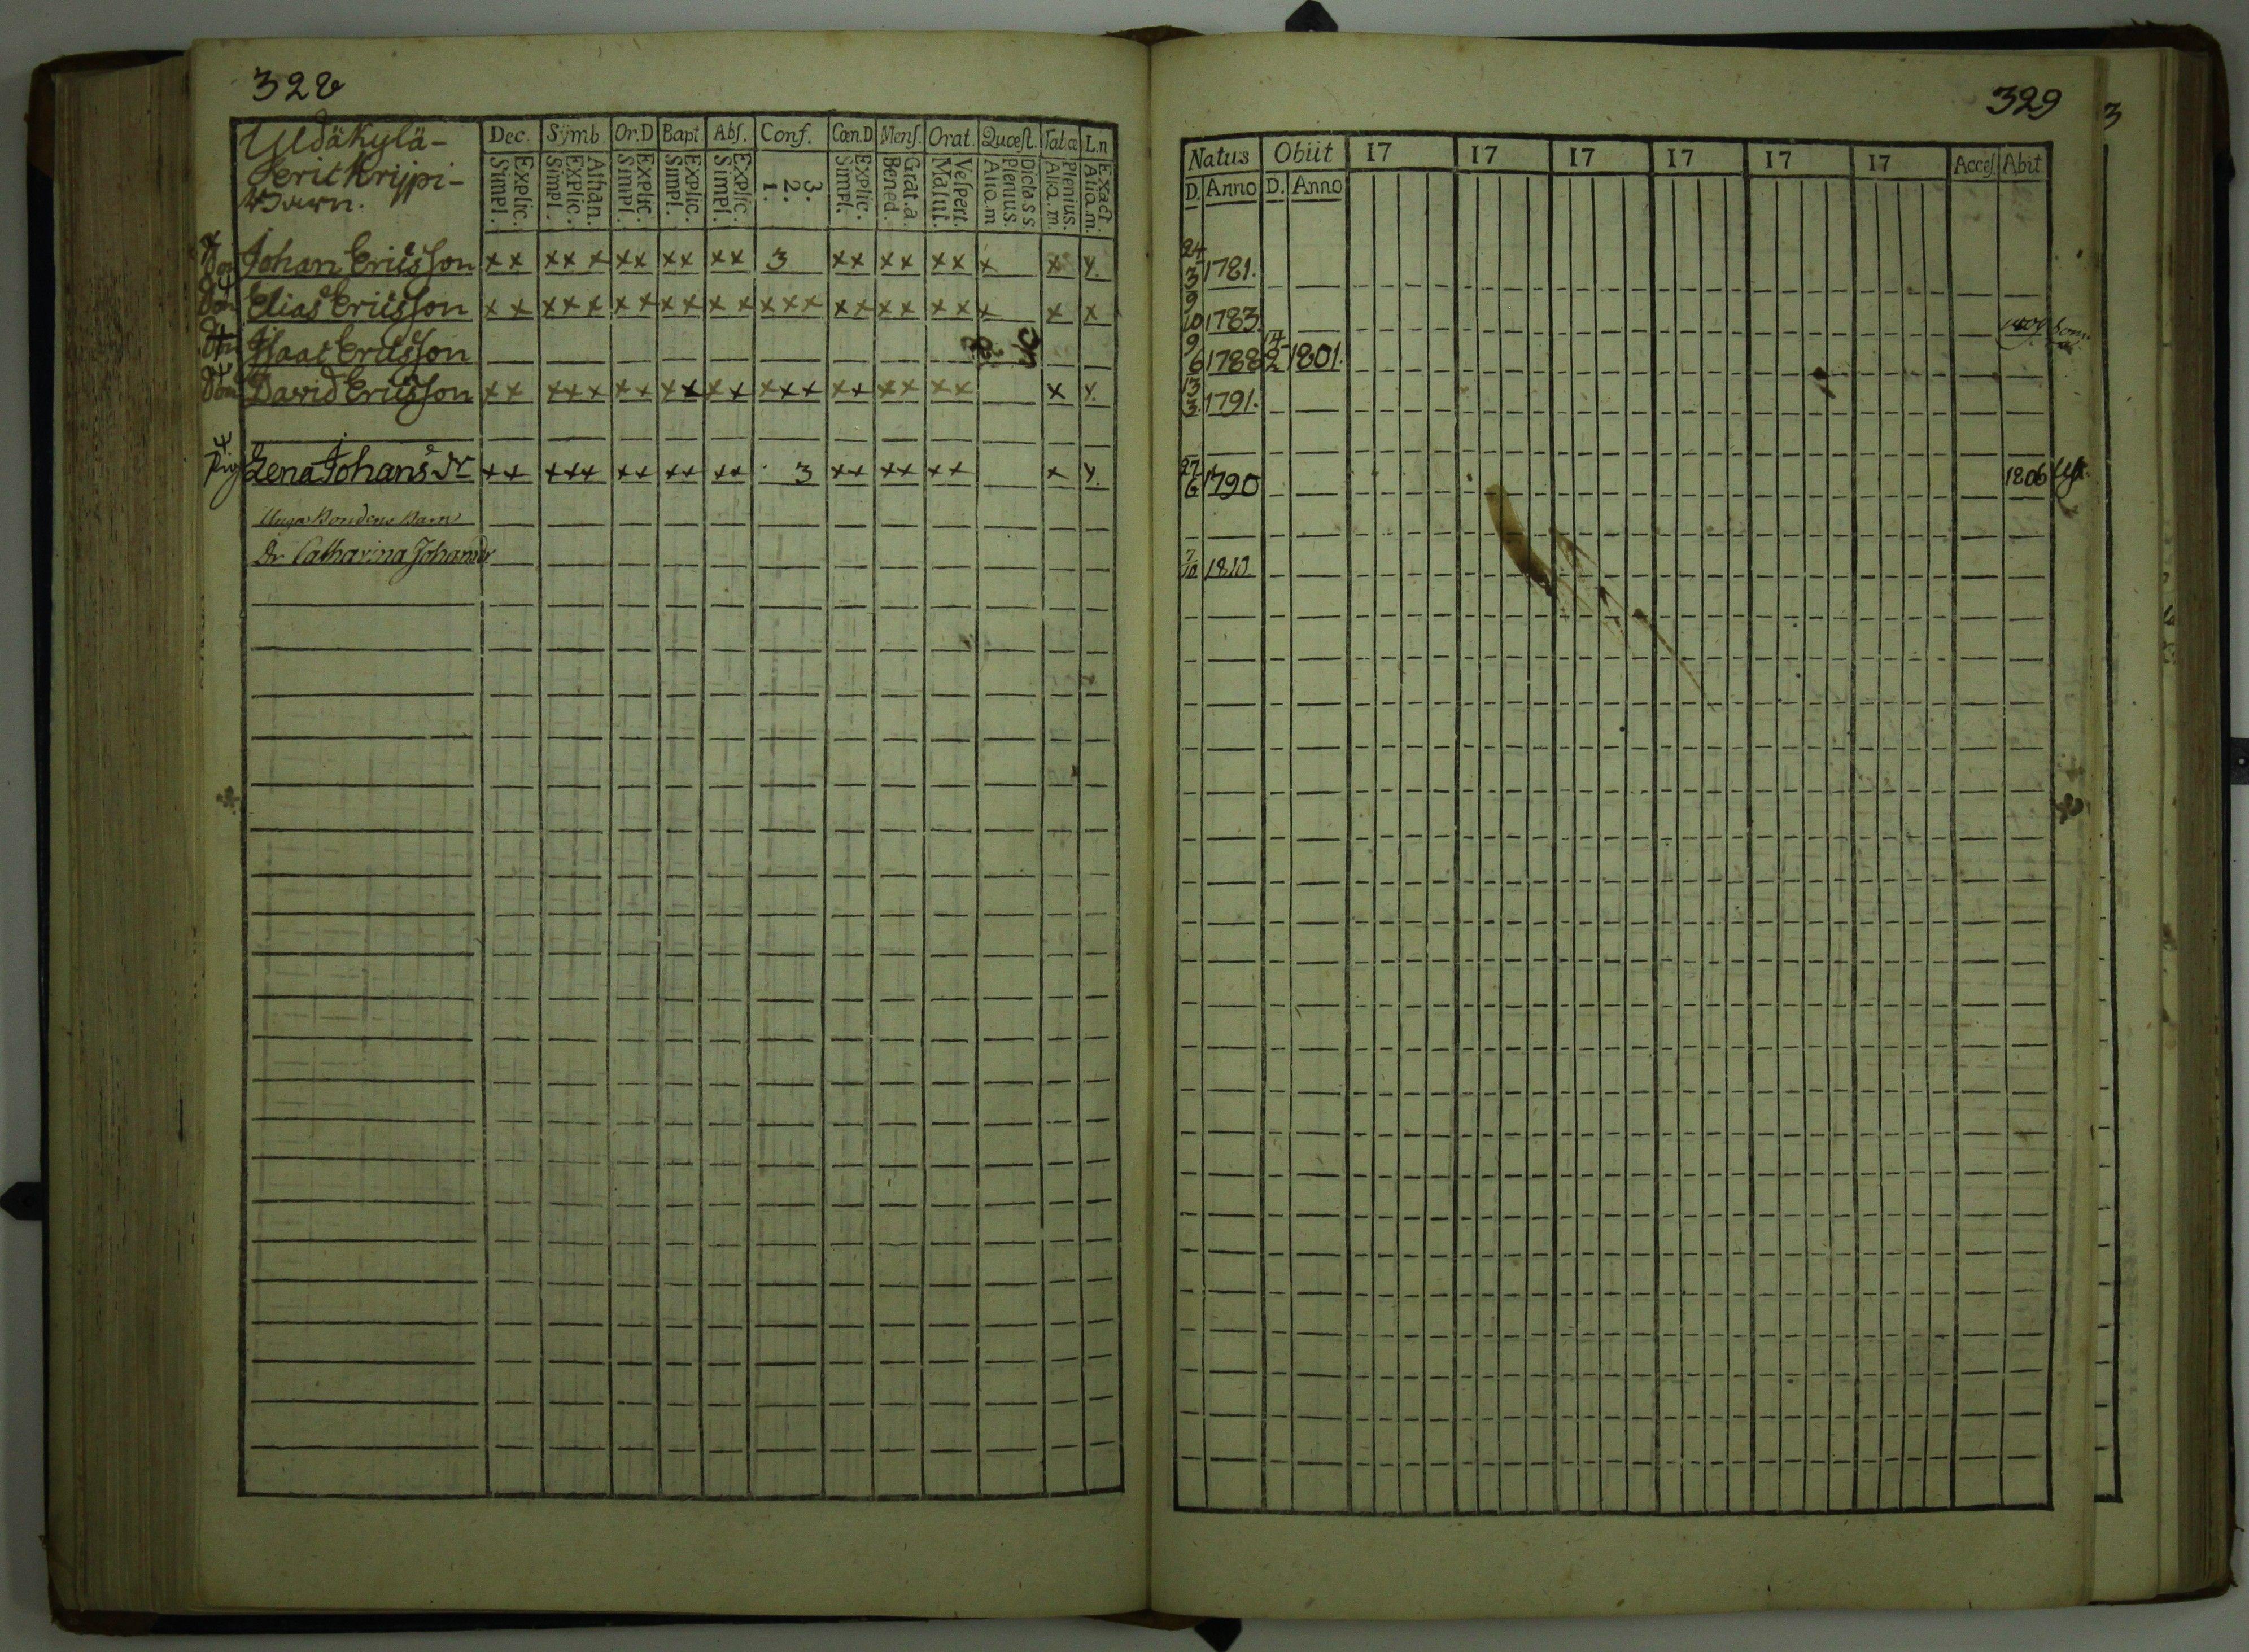 328
Yldäkylä-
Barn.
Dec. Symb. Or.D Bapt. Abs. Conf. Cœn.D Mens. Orat. Quœst. Tabæ L.n
Explic. Simpl. Athan. Explic. Simpl. Explic. Simpl. Explic. Simpl. Explic. Simpl. 3. 2. 1. Explic. Simpl. Grat.a. Bened. Vespert. Matut. Dicta s s. Plenius. Aliq.m Plenius. Aliq.m. Exact. Aliq.m.
Son Johan Ericsson x x x x x x x x x x x 3 x x x x x x x x x
Son Elias Ericsson x x x x x x x x x x x x x x x x x x x x x x x
Son Isaac Ericsson
Son David Ericsson x x x x x x x x x x x x x x x x x x x x x x
Pig Lena Johans dr x x x x x x x x x x x 3 x x x x x x x x
Unga Bondens Barn
Dr Catharina Johansdr
329
Natus Obiit 17 17 17 17 17 17 Acces. Abit.
D. Anno D. Anno
24/3 1781.
9/10 1783.
9/6 1788 14/2 1801.
13/3 1791.
27/6 1790 1806
7/10 1810.
3